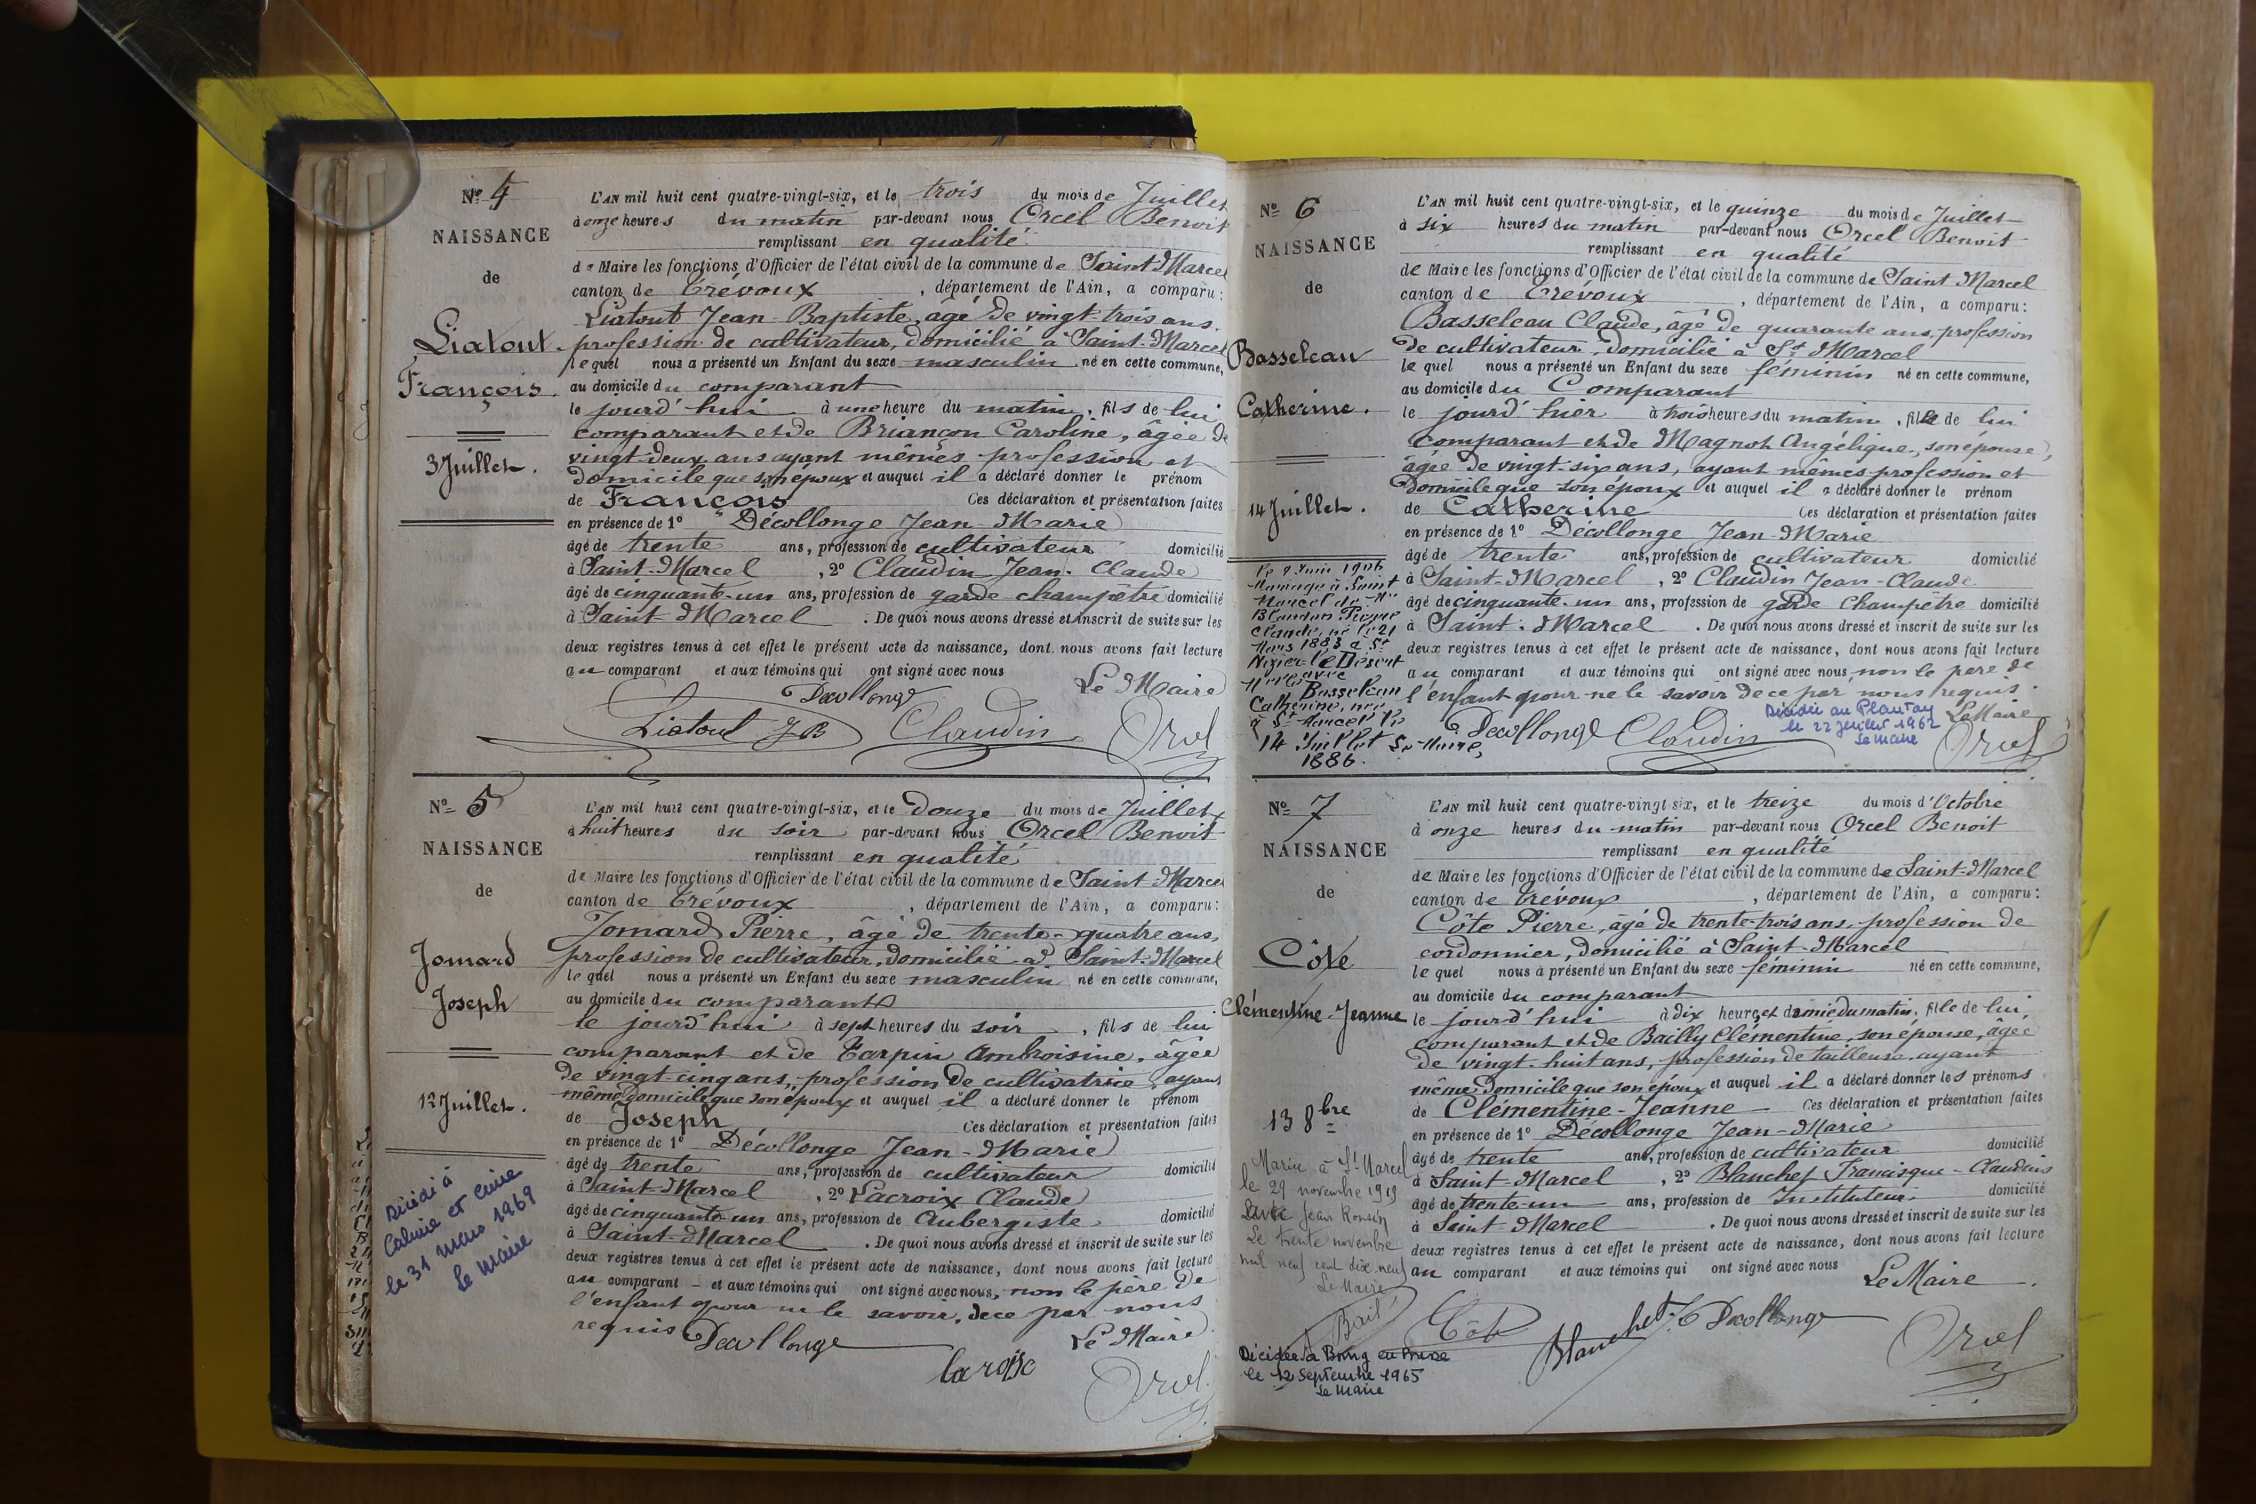 Nº 4
NAISSANCE
de
Liatout
François.
3 Juillet.
L'AN mil huit cent quatre-vingt-six, et le trois du mois de Juillet
à onze heures du matin par-devant nous Orcel Benoit
remplissant en qualité
de Maire les fonctions d'Officier de l'état civil de la commune de Saint-Marcel
canton de Trévoux, département de l'Ain, a comparu:
Liatout Jean-Baptiste, âgé de vingt-trois ans,
profession de cultivateur, domicilié à Saint-Marcel
lequel nous a présenté un Enfant du sexe masculin né en cette commune,
au domicile du comparant
le jourd'hui à une heure du matin, fils de lui
comparant et de Briançon Caroline, âgée de
vingt-deux ans ayant mêmes profession et
domicile que son époux et auquel il a déclaré donner le prénom
de François Ces déclaration et présentation faites
en présence de 1º Décollonge Jean-Marie
âgé de trente ans, profession de cultivateur domicilié
à Saint-Marcel, 2º Claudin Jean-Claude
âgé de cinquante-un ans, profession de garde champêtre domicilié
à Saint-Marcel. De quoi nous avons dressé et inscrit de suite sur les
deux registres tenus à cet effet le présent acte de naissance, dont nous avons fait lecture
au comparant et aux témoins qui ont signé avec nous
Le Maire
Decollonge
Liatout JB Claudin Orcel
Nº 5
NAISSANCE
de
Jomard
Joseph
12 Juillet.
Décidé à
Caluire et Cuire
le 31 Mars 1969
Le Maire
L'AN mil huit cent quatre-vingt-six, et le douze du mois de Juillet
à huit heures du soir par-devant nous Orcel Benoit
remplissant en qualité
de Maire les fonctions d'Officier de l'état civil de la commune de Saint-Marcel
canton de Trévoux, département de l'Ain, a comparu:
Jomard Pierre, âgé de trente-quatre ans,
profession de cultivateur, domicilié à Saint-Marcel
lequel nous a présenté un Enfant du sexe masculin né en cette commune,
au domicile du comparant
le jourd'hui à sept heures du soir, fils de lui
comparant et de Tarpin Ambroisine, âgée
de vingt-cinq ans, profession de cultivatrice, ayant
même domicile que son époux et auquel il a déclaré donner le prénom
de Joseph Ces déclaration et présentation faites
en présence de 1º Décollonge Jean-Marie
âgé de trente ans, profession de cultivateur domicilié
à Saint-Marcel, 2º Lacroix Claude
âgé de cinquante-un ans, profession de Aubergiste domicilié
à Saint-Marcel. De quoi nous avons dressé et inscrit de suite sur les
deux registres tenus à cet effet le présent acte de naissance, dont nous avons fait lecture
au comparant et aux témoins qui ont signé avec nous, non le père de
l'enfant pour ne le savoir, de ce par nous
requis Decollonge Le Maire
Orcel
Nº 6
NAISSANCE
de
Basseleau
Catherine.
14 Juillet.
Le 9 Juin 1906
Mariage à Saint
Marcel de Mr
Blandon Pierre
Claude, né le 21
Mars 1883 à St
Nizier-le-Désert
avec
Basseleau
Catherine, née
à St Marcel le
14 Juillet
1886. Le Maire,
L'AN mil huit cent quatre-vingt-six, et le quinze du mois de Juillet
à six heures du matin par-devant nous Orcel Benoit
remplissant en qualité
de Maire les fonctions d'Officier de l'état civil de la commune de Saint Marcel
canton de Trévoux, département de l'Ain, a comparu:
Basseleau Claude, âgé de quarante ans, profession
de cultivateur, domicilié à St Marcel
lequel nous a présenté un Enfant du sexe féminin né en cette commune,
au domicile du Comparant
le jourd'hier à trois heures du matin, fille de lui
comparant et de Magnot Angélique, son épouse,
âgée de vingt-six ans, ayant mêmes profession et
domicile que son époux et auquel il a déclaré donner le prénom
de Catherine Ces déclaration et présentation faites
en présence de 1º Décollonge Jean-Marie
âgé de trente ans, profession de cultivateur domicilié
à Saint-Marcel, 2º Claudin Jean-Claude
âgé de cinquante-un ans, profession de garde Champêtre domicilié
à Saint-Marcel. De quoi nous avons dressé et inscrit de suite sur les
deux registres tenus à cet effet le présent acte de naissance, dont nous avons fait lecture
au comparant et aux témoins qui ont signé avec nous non le père de
l'enfant pour ne le savoir de ce par nous requis.
Décidée au Plantay
le 22 Juillet 1962
Le Maire
Le Maire
Decollonge Claudin Orcel
Nº 7
NAISSANCE
de
Côte
Clémentine-Jeanne
13 8bre
Mariée à St Marcel
le 29 novembre 1919
avec Jean Ronsin
Le trente novembre
mil neuf cent dix-neuf
Le Maire
Décidée à Bourg en Bresse
le 12 Septembre 1965
Le Maire
L'AN mil huit cent quatre-vingt-six, et le treize du mois d'Octobre
à onze heures du matin par-devant nous Orcel Benoit
remplissant en qualité
de Maire les fonctions d'Officier de l'état civil de la commune de Saint-Marcel
canton de Trévoux, département de l'Ain, a comparu:
Côte Pierre, âgé de trente-trois ans, profession de
cordonnier, domicilié à Saint-Marcel
lequel nous a présenté un Enfant du sexe féminin né en cette commune,
au domicile du comparant
le jourd'hui à dix heures et demie du matin, fille de lui,
comparant et de Bailly Clémentine, son épouse, âgée
de vingt-huit ans, profession de tailleuse, ayant
même domicile que son époux et auquel il a déclaré donner les prénoms
de Clémentine-Jeanne Ces déclaration et présentation faites
en présence de 1º Décollonge Jean-Marie
âgé de trente ans, profession de cultivateur domicilié
à Saint-Marcel, 2º Blanchet Francisque-Claudius
âgé de trente-un ans, profession de Instituteur domicilié
à Saint-Marcel. De quoi nous avons dressé et inscrit de suite sur les
deux registres tenus à cet effet le présent acte de naissance, dont nous avons fait lecture
au comparant et aux témoins qui ont signé avec nous
Le Maire.
Côte Blanchet Decollonge Orcel